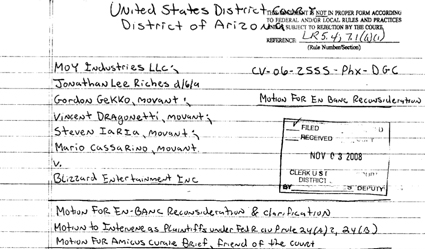 United States District Court
District of Arizona
NOT IN PROPER FORM ACCORDING
TO FEDERAL AND/OR LOCAL RULES AND PRACTICES
SUBJECT TO REJECTION BY THE COURT.
REFERENCE LR 5.4, 7.1(a)(1)
(Rule Number/Section)
Moy Industries LLC;
Jonathan Lee Riches d/b/a
Gordon Gekko, movant;
Vincent Dragonetti, movant;
Steven Iaria, movant;
Mario Cassarino, movant
v.
Blizzard Entertainment Inc
CV-06-2555-Phx-DGC
Motion For En Banc Reconsideration
FILED
RECEIVED
NOV 03 2008
CLERK U S
DISTRICT
BY DEPUTY
Motion For En-Banc Reconsideration & clarification
Motion to Intervene as Plaintiffs under Fed R Civ P rule 24(A)2, 24(B)
Motion For Amicus Curiae Brief, Friend of the court